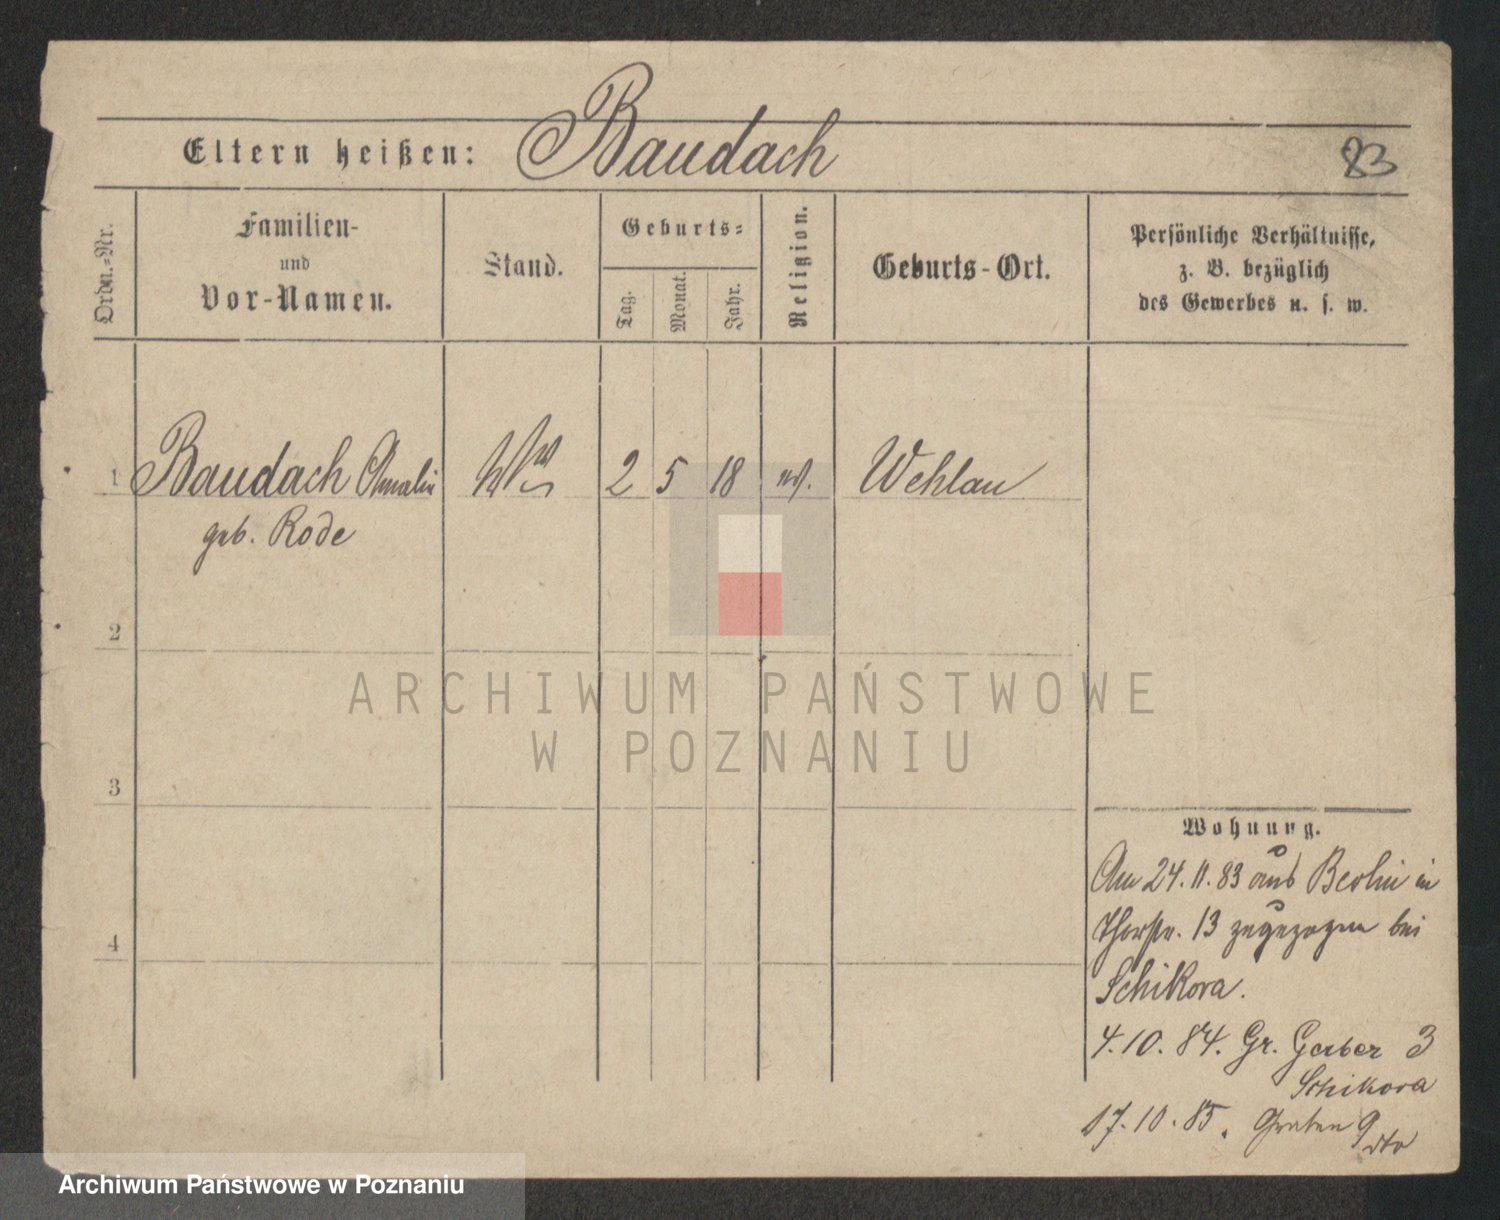 Eltern heißen: Baudach
83
Ordn.-Nr.
Familien-
und
Vor-Namen.
Stand.
Geburts-
Tag.
Monat.
Jahr.
Religion.
Geburts-Ort.
Persönliche Verhältnisse,
z. B. bezüglich
des Gewerbes u. s. w.
1 Baudach Amalie 2 5 18 Wehlau
geb. Rode
2
ARCHIWUM PAŃSTWOWE
W POZNANIU
3
Wohnung.
Am 24.11.83 aus Berlin in
Thorstr. 13 zugezogen bei
Schikora.
4
4.10.84. Gr. Gerber 3
Schikora
17.10.85. Graben 9
dto
Archiwum Państwowe w Poznaniu